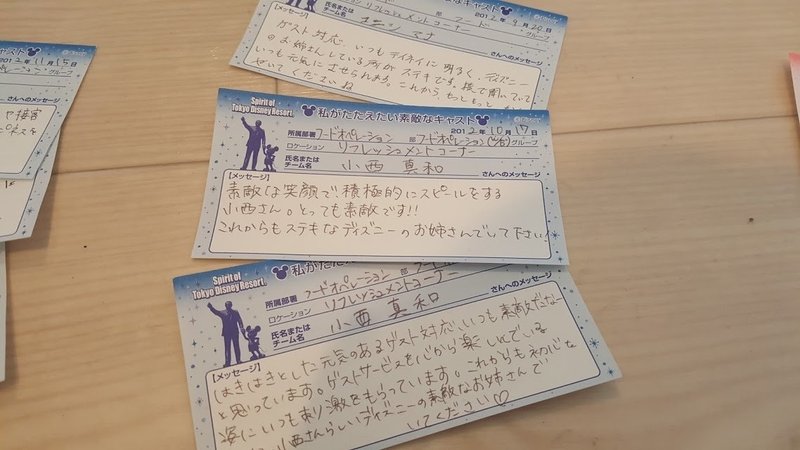 たいキャスト
2012年11月15日
グループ
さんへのメッセージ
フード
2012年9月20日
部
グループ
ロケーション リフレッシュメントコーナー
氏名または
チーム名
コニシ マナ
さんへのメッセージ
【メッセージ】
ゲスト対応、いつもテイネイに明るく、ディズニー
のお姉さんしている所がステキです。
いつも元気にさせられます。これからもっともっと
せてくださいね
Spirit of
Tokyo Disney Resort
私がたたえたい素敵なキャスト
2012年10月17日
所属部署 フードオペレーション 部 フードオペレーション グループ
ロケーション リフレッシュメントコーナー
氏名または
チーム名 小西 真和 さんへのメッセージ
【メッセージ】
素敵な笑顔で、積極的にスピールをする
小西さん。とっても素敵です!!
これからもステキなディズニーのお姉さんでして下さい!
Spirit of
Tokyo Disney Resort
私がたたえたい素敵な
所属部署 フードオペレーション 部
ロケーション リフレッシュメントコーナー
氏名または
チーム名 小西 真和
さんへのメッセージ
【メッセージ】
はきはきとした元気のあるゲスト対応、いつも素敵だなー
と思っています。ゲストサービスを心から楽しんでいる
姿にいつも刺激をもらっています。これからも初心を
小西さんらしいディズニーの素敵なお姉さんで
いてください♡